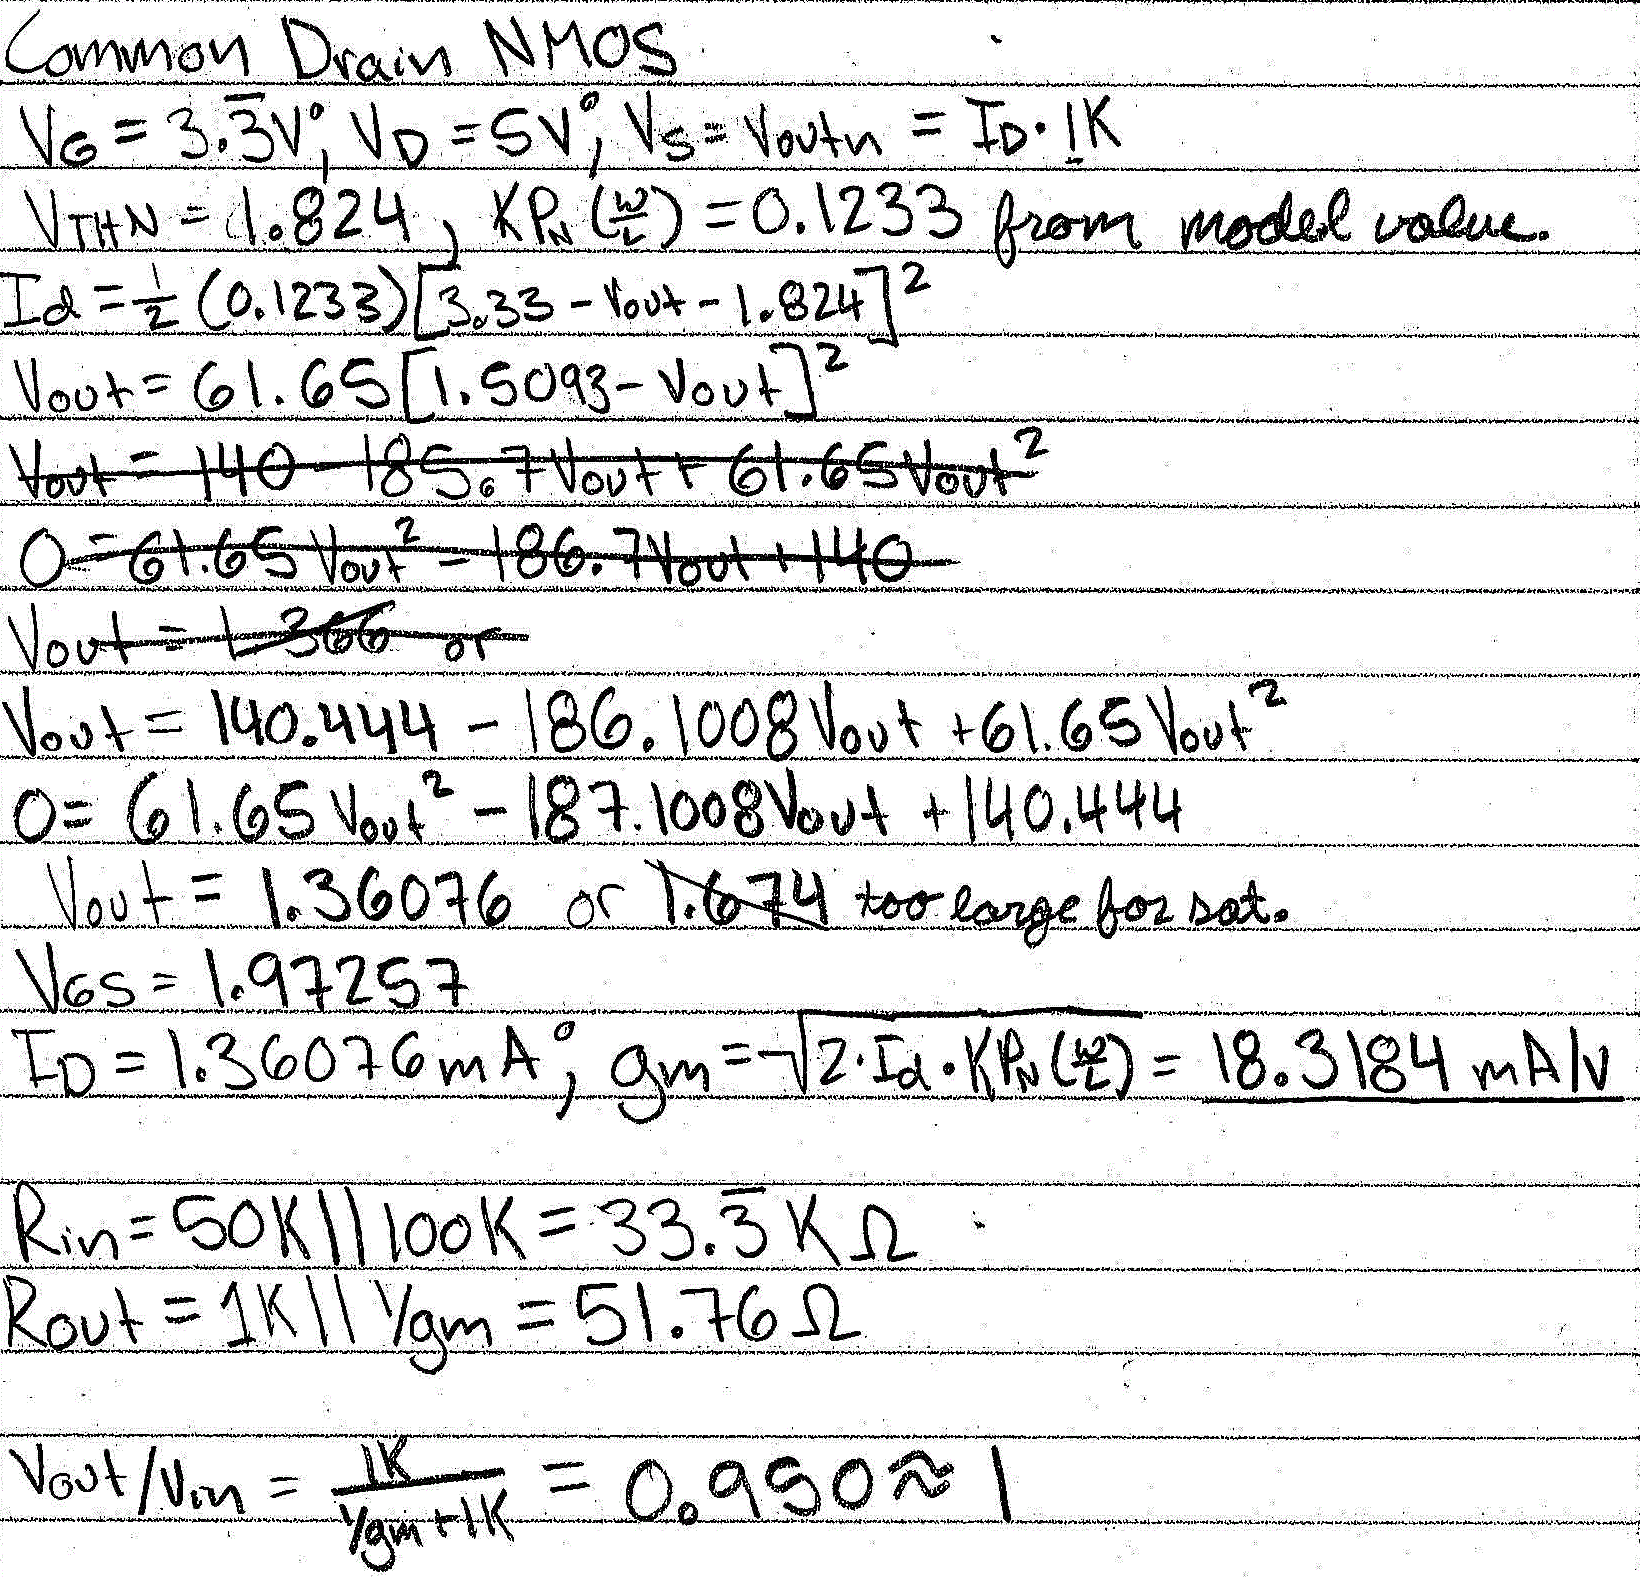 Common Drain NMOS
VG = 3.3̅V; VD = 5V; VS = Voutn = ID · 1K
VTHN = 1.824, KPN(W/L) = 0.1233 from model value.
Id = 1/2 (0.1233)[3.33 - Vout - 1.824]²
Vout = 61.65[1.5093 - Vout]²
Vout = 140 - 185.7Vout + 61.65Vout²
0 = 61.65Vout² - 186.7Vout + 140
Vout = 1.366 or
Vout = 140.444 - 186.1008Vout + 61.65Vout²
0 = 61.65Vout² - 187.1008Vout + 140.444
Vout = 1.36076 or 1.674 too large for sat.
VGS = 1.97257
ID = 1.36076mA; gm = √2·Id·KPN(W/L) = 18.3184 mA/V
Rin = 50K||100K = 33.3̅KΩ
Rout = 1K||1/gm = 51.76Ω
Vout/Vin = 1K/(1/gm+1K) = 0.950 ≈ 1